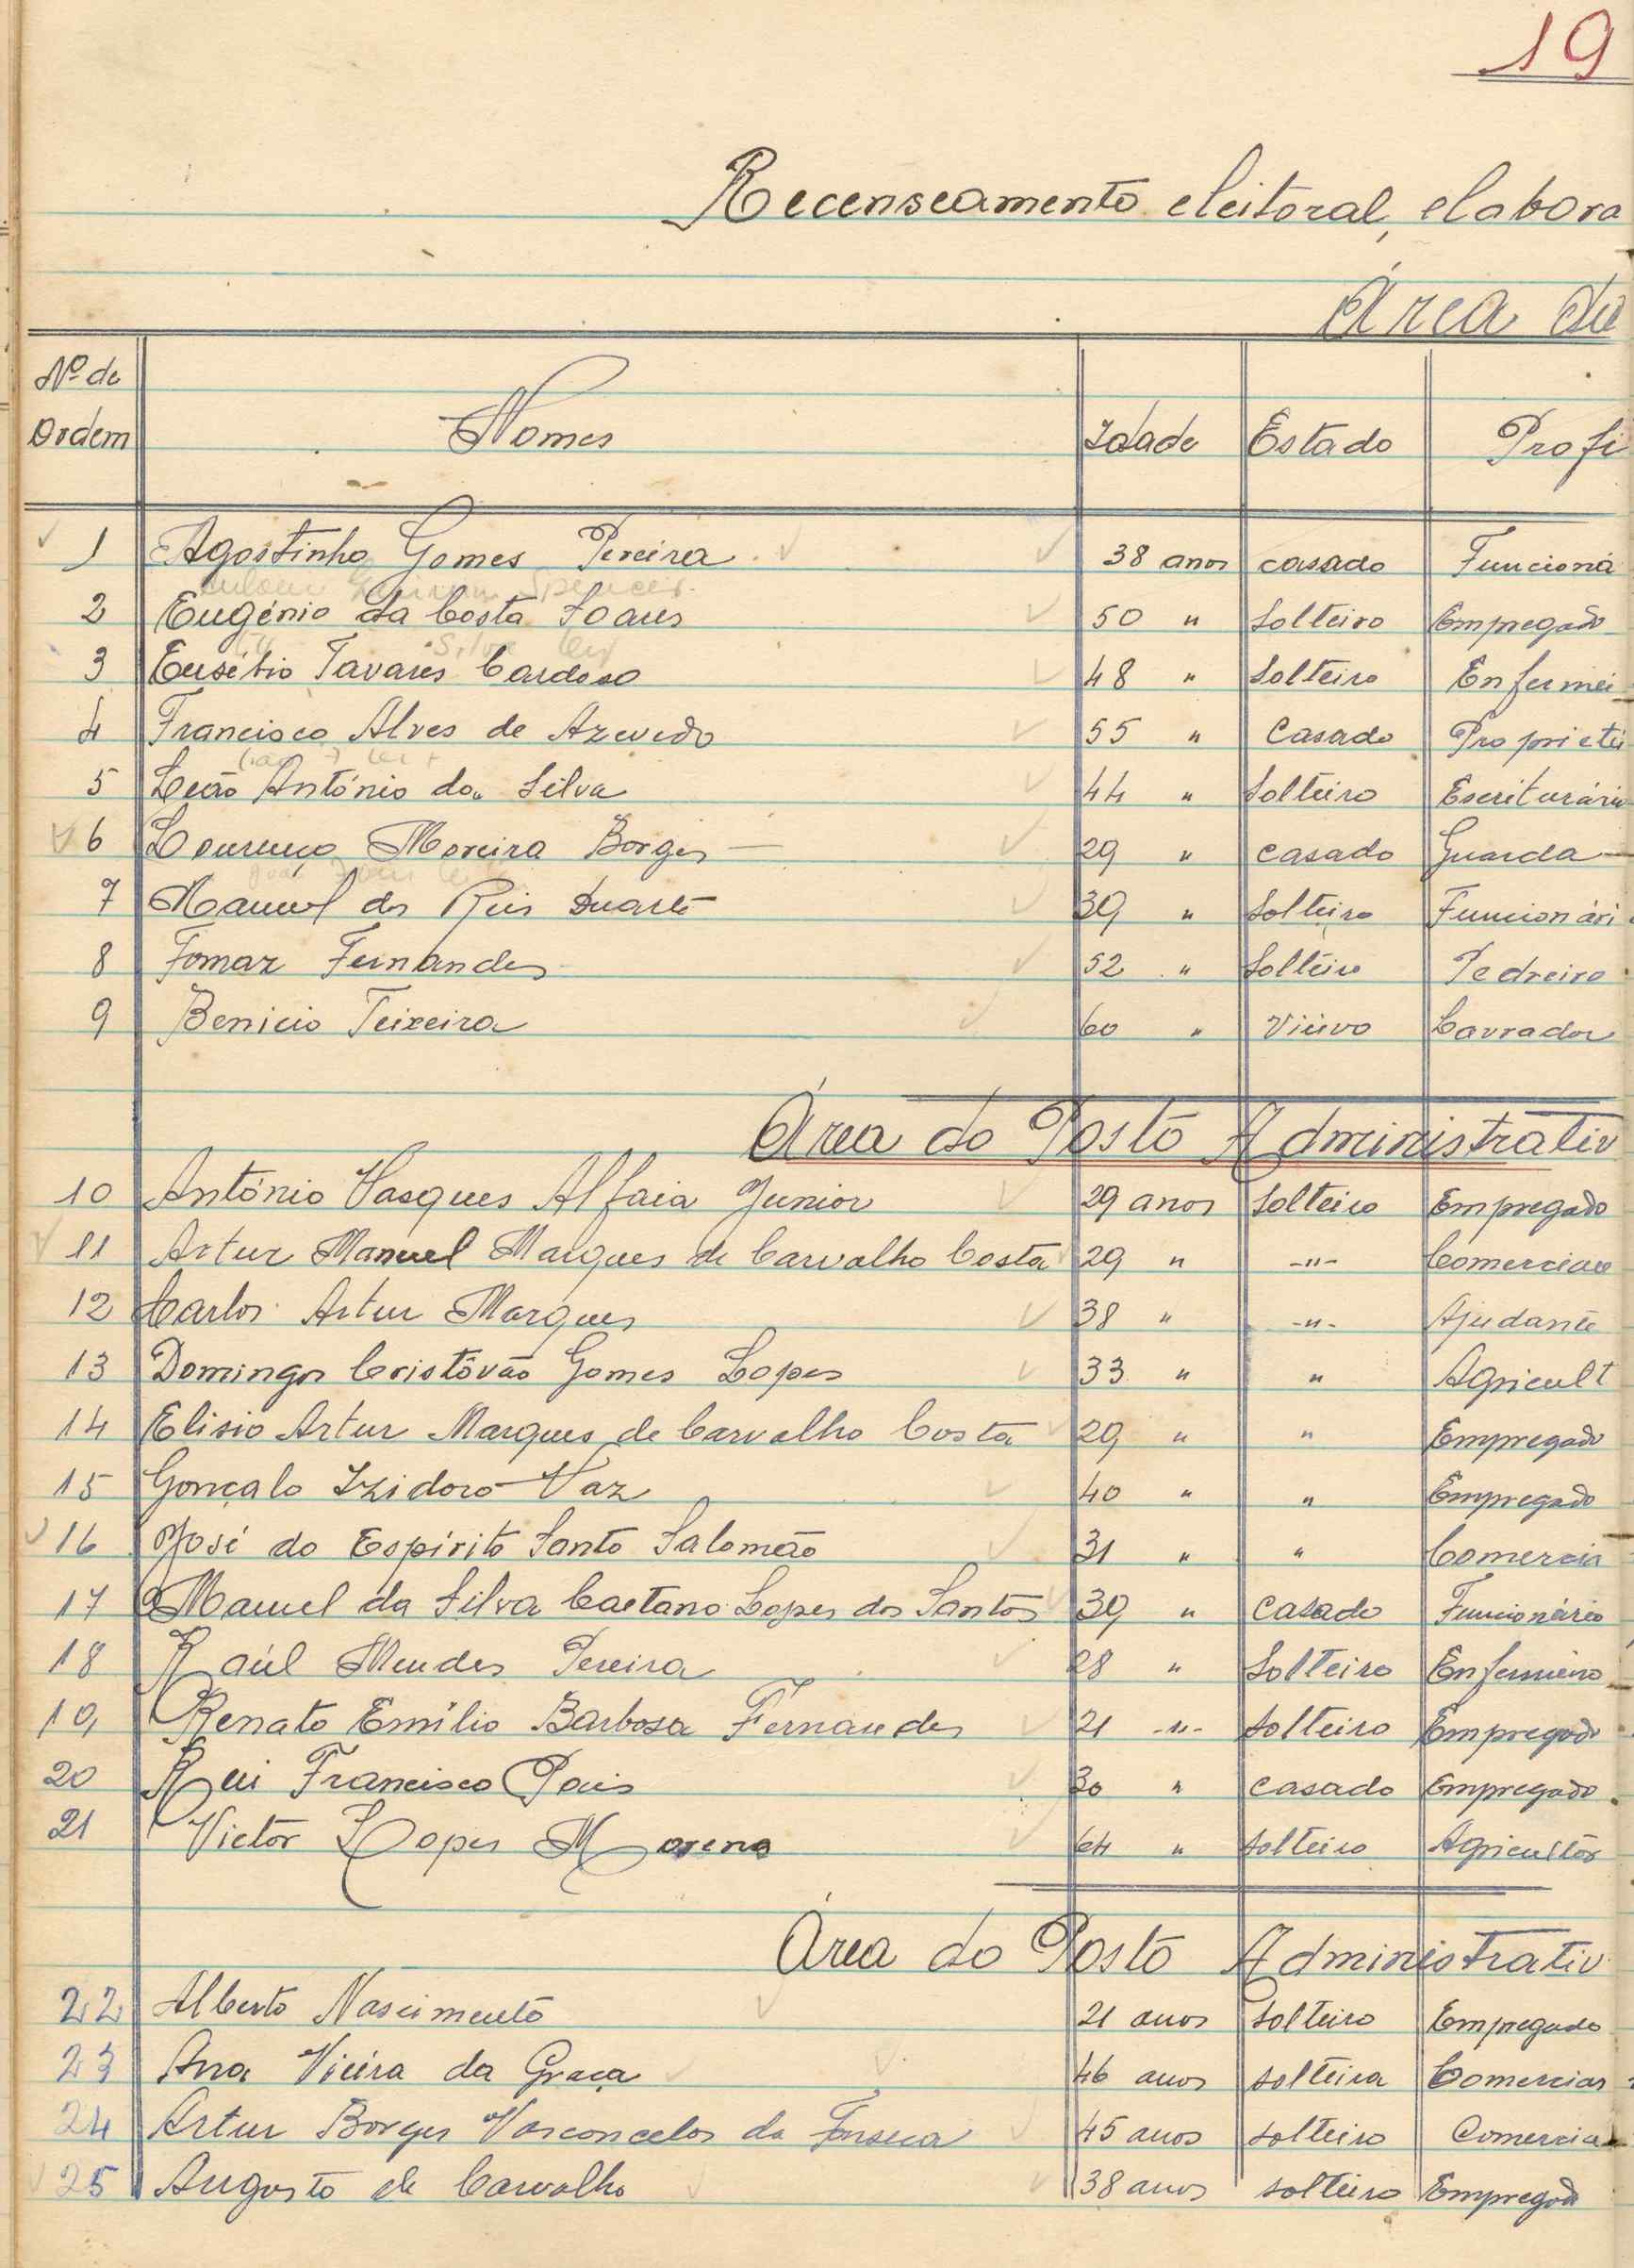 19
Recenseamento eleitoral, elabora
Área do
Nº de Ordem Nomes Idade Estado Profi
1 Agostinho Gomes Pereira 38 anos casado Funcioná
2 Eugénio da Costa Soares 50 " Solteiro Empregado
3 Eusébio Tavares Cardoso 48 " Solteiro Enfermei
4 Francisco Alves de Azevedo 55 " Casado Proprietá
5 Leão António da Silva 44 " Solteiro Escriturário
6 Lourenço Moreira Borges 29 " casado Guarda
7 Manuel dos Reis Duarte 39 " Solteiro Funcionári
8 Tomaz Fernandes 52 " Solteiro Pedreiro
9 Benicio Teixeira 60 " Viúvo Lavrador
Área do Posto Administrativ
10 António Vasques Alfaia Junior 29 anos Solteiro Empregado
11 Artur Manuel Marques de Carvalho Costa 29 " -"- Comercian
12 Carlos Artur Marques 38 " -"- Ajudante
13 Domingos Cristóvão Gomes Lopes 33 " " Agricult
14 Elisio Artur Marques de Carvalho Costa 29 " " Empregado
15 Gonçalo Izidoro Vaz 40 " " Empregado
16 José do Espírito Santo Salomão 31 " " Comercia
17 Manuel da Silva Caetano Lopes dos Santos 39 " Casado Funcionário
18 Raúl Mendes Pereira 28 " Solteiro Enfermeiro
19 Renato Emílio Barbosa Fernandes 21 -"- Solteiro Empregado
20 Rui Francisco Pais 30 " casado Empregado
21 Victor Lopes Moreno 64 " solteiro Agricultor
Área do Posto Administrativ
22 Alberto Nascimento 21 anos solteiro Empregado
23 Ana Vieira da Graça 46 anos solteira Comercian
24 Artur Borges Vasconcelos da Fonseca 45 anos solteiro Comercia
25 Augusto de Carvalho 38 anos solteiro Empregado